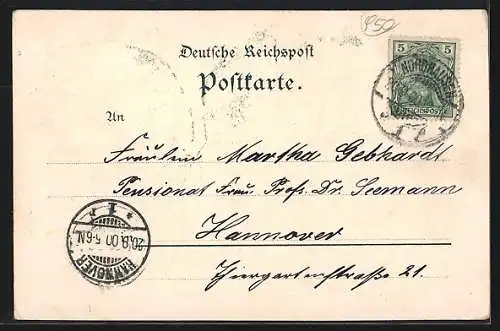 950
Deutsche Reichspost
Postkarte.
5 5
NORDHAUSEN
REICHSPOST
An
Fräulein Martha Gebhardt
Pensionat Frau Prof. Dr. Seemann
Hannover
Thiergartenstraße 21.
* 1 r
20.6.00.5-6N.
HANNOVER